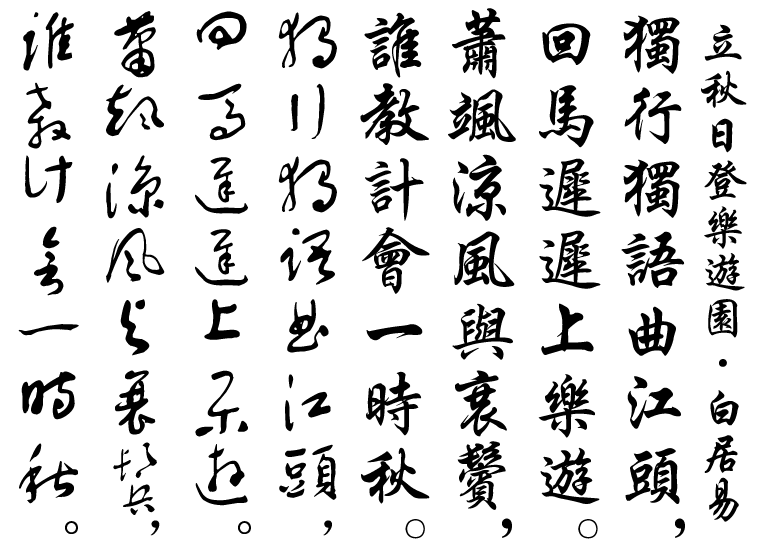 立秋日登樂遊園·白居易
獨行獨語曲江頭,
回馬遲遲上樂遊。
蕭颯涼風與衰鬢,
誰教計會一時秋。
獨行獨語曲江頭,
回馬遲遲上樂遊。
蕭颯涼風與衰鬢,
誰教計會一時秋。